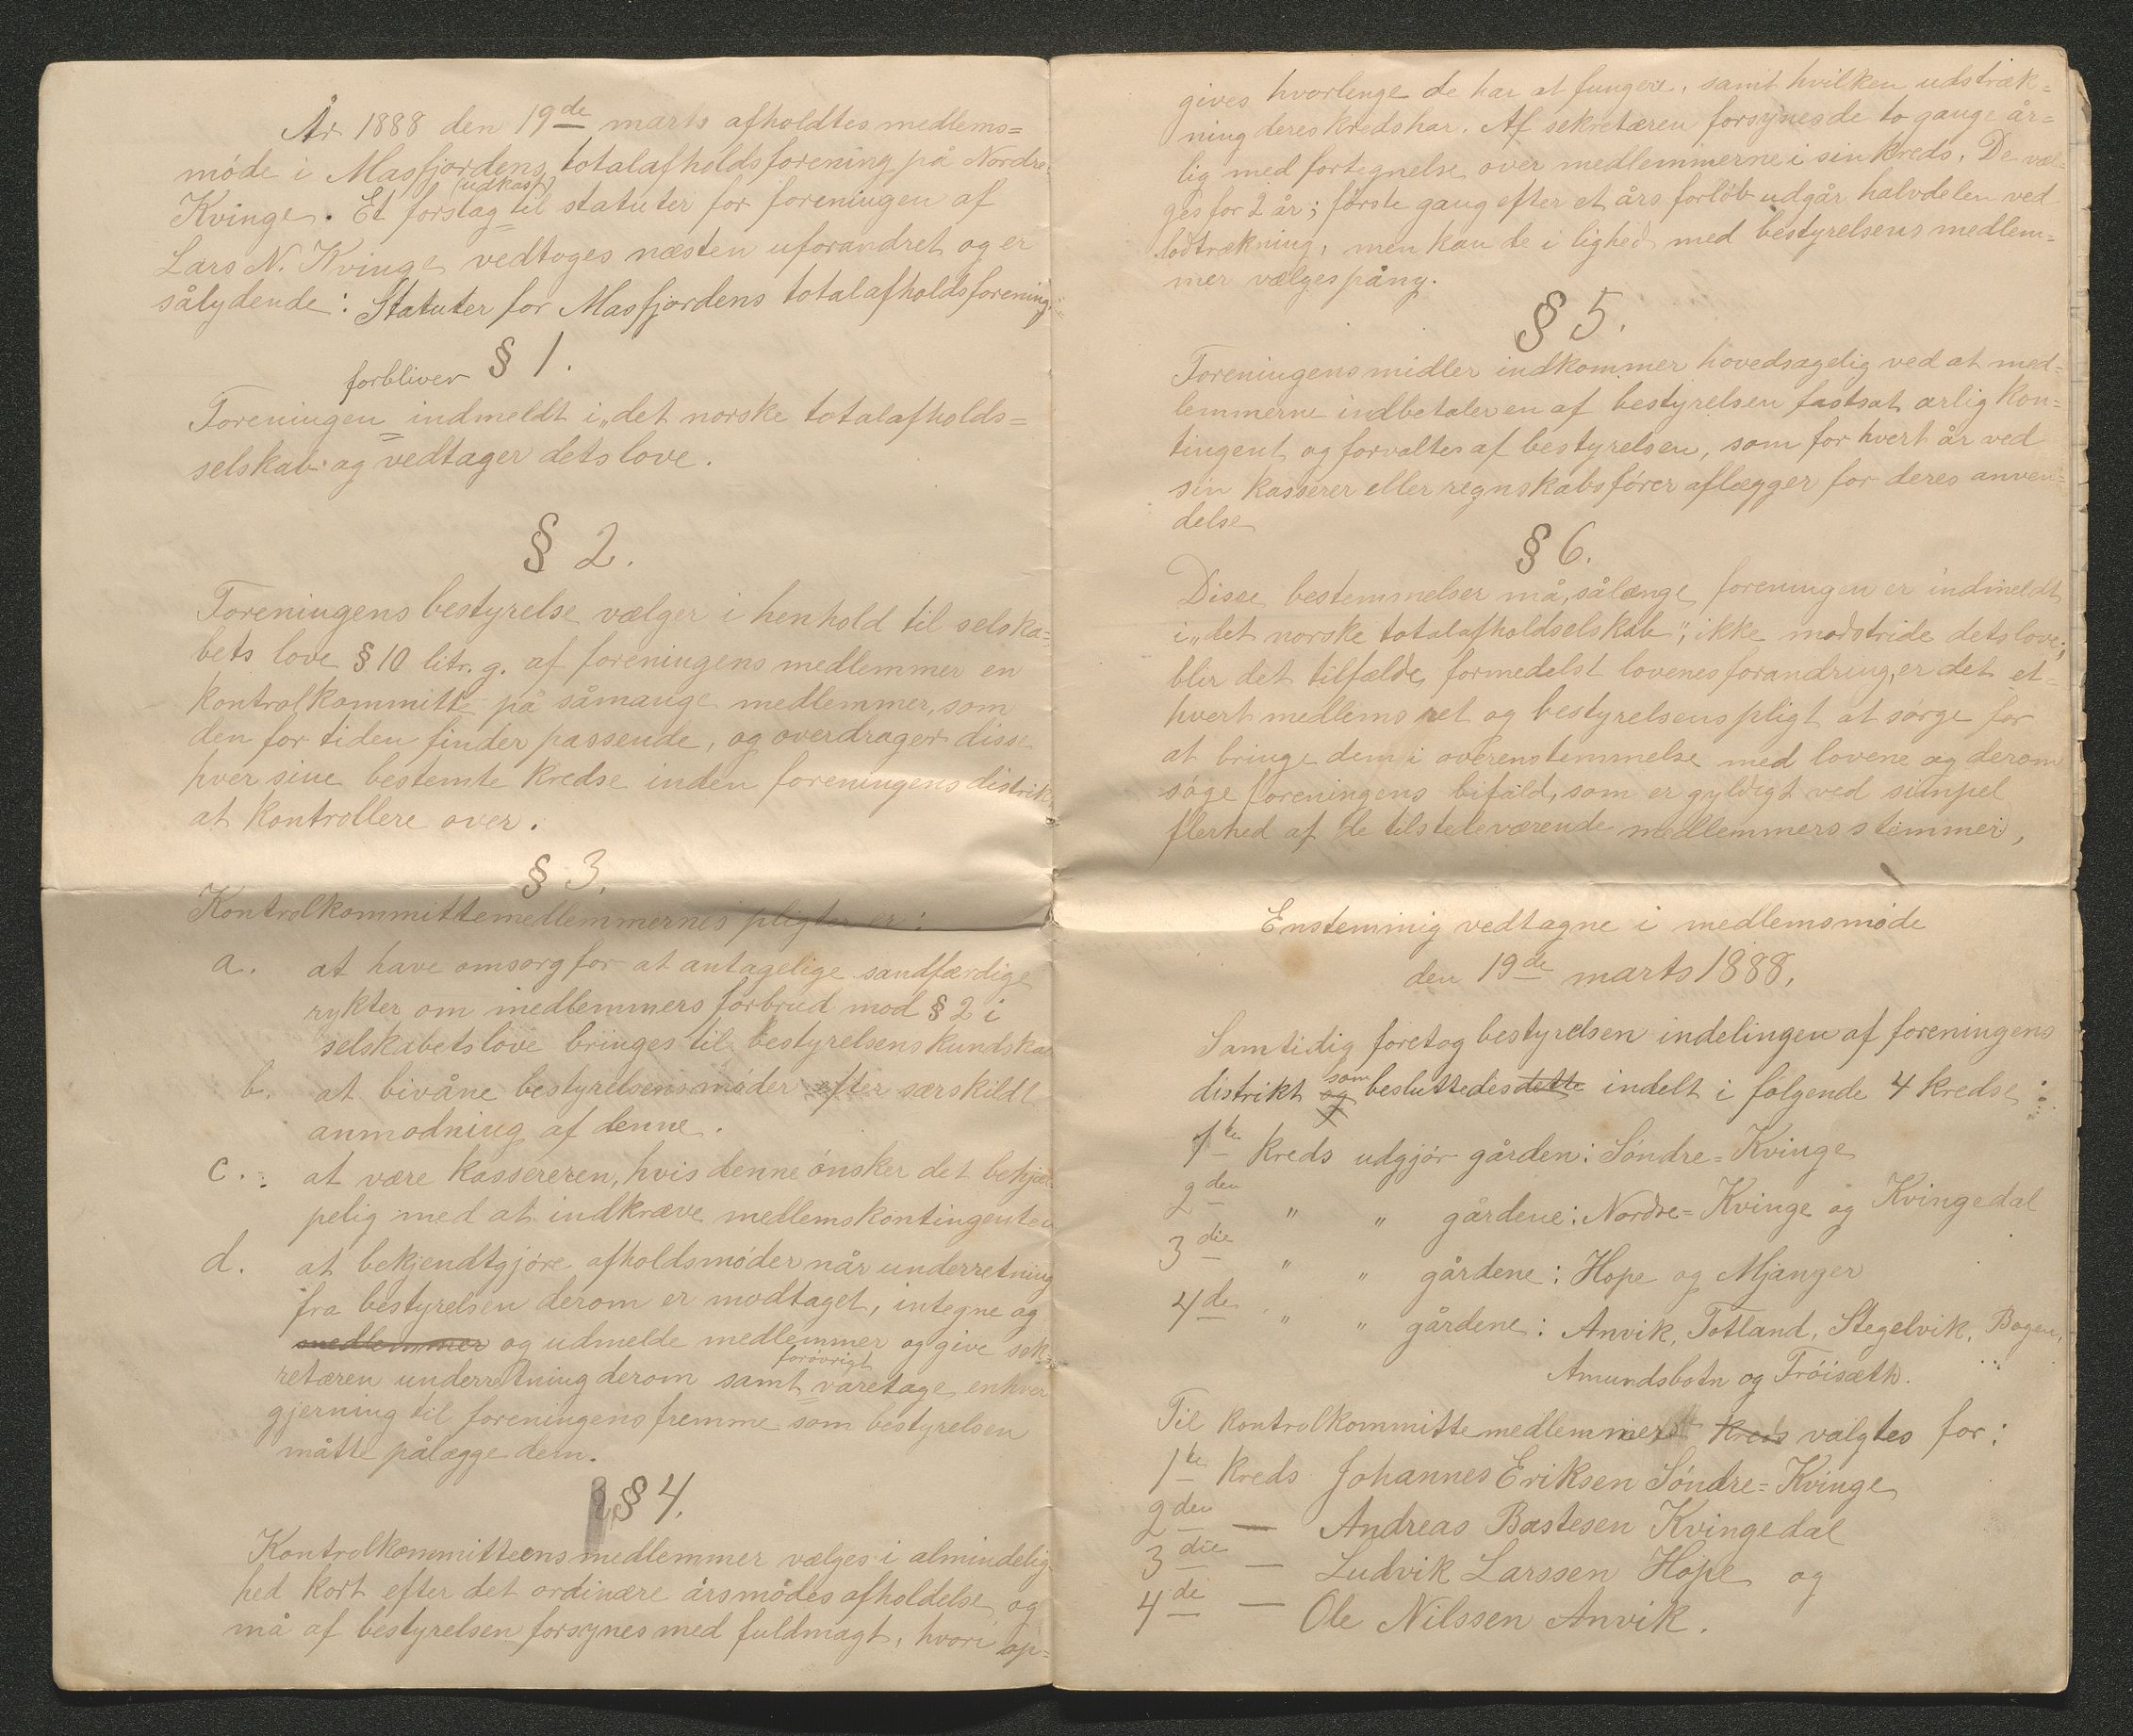 År 1888 den 19de marts afholdtes medlems=
møde i Masfjordens totalafholdsforening på Nordre
Kvinge. Et forslag (udkast) til statuter for foreningen af
Lars N. Kvinge vedtoges næsten uforandret og er
sålydende: Statuter for Masfjordens totalafholdsforening:
§ 1.
forbliver
Foreningen indmeldt i „det norske totalafholds=
selskab" og vedtager dets love.
§ 2.
Foreningens bestyrelse vælger i henhold til selska=
bets love § 10 litr. g. af foreningens medlemmer en
kontrolkommitte på såmange medlemmer, som
den for tiden finder passende, og overdrager disse
hver sine bestemte kredse inden foreningens distrikt
at kontrollere over.
§ 3.
Kontrolkommittemedlemmernes pligter er:
a. at have omsorg for at antagelige sandfærdige
rykter om medlemmers forbrud mod § 2 i
selskabets love bringes til bestyrelsens kundskab
b. at bivåne bestyrelsens møder efter særskildt
anmodning af denne.
c. at være kassereren, hvis denne ønsker det behjæl
pelig med at indkræve medlemskontingenten
d. at bekjendtgjøre afholdsmøder når underretning
fra bestyrelsen derom er modtaget, integne og
medlemmer og udmelde medlemmer og give sek=
retæren underretning derom samt forøvrigt varetage enhver
gjerning til foreningens fremme som bestyrelsen
måtte pålægge dem.
§ 4.
Kontrolkommitteens medlemmer vælges i almindelig
hed kort efter det ordinære årsmødes afholdelse og
må af bestyrelsen forsynes med fuldmagt, hvori op=
gives hvorlenge de har at fungere, samt hvilken udstræk=
ning deres kreds har. Af sekretæren forsynes de to gange år=
lig med fortegnelse over medlemmerne i sin kreds. De væl=
ges for 2 år; første gang efter et års forløb udgår halvdelen ved
lodtrækning, men kan de i lighed med bestyrelsens medlem=
mer vælges påny.
§ 5.
Foreningens midler indkommer hovedsagelig ved at med=
lemmerne indbetaler en af bestyrelsen fastsat ærlig kon=
tingent og forvaltes af bestyrelsen, som for hvert år ved
sin kasserer eller regnskabsfører aflægger for deres anven=
delse
§ 6.
Disse bestemmelser må, sålænge foreningen er indmeldt
i „det norske totalafholdselskab", ikke modstride dets love;
blir det tilfælde, formedelst lovenes forandring, er det et=
hvert medlems ret og bestyrelsens pligt at sørge for
at bringe dem i overenstemmelse med lovene og derom
søge foreningens bifald, som er gyldigt ved simpel
flerhed af de tilsteteværende medlemmers stemmer,
Enstemmig vedtagne i medlemsmøde
den 19de marts 1888,
Samtidig foretog bestyrelsen indelingen af foreningens
distrikt og som besluttedes dette indelt i følgende 4 kredse:
1te kreds udgjør gården: Søndre=Kvinge
2den " " gårdene: Nordre=Kvinge og Kvingedal
3die " " gårdene: Hope og Mjanger
4de " " gårdene: Anvik, Totland, Stegelvik, Bogen,
Amundsbotn og Trøisæth.
Til kontrolkommittemedlemmer kreds valgtes for:
1te kreds Johannes Eriksen Søndre=Kvinge
2den — Andreas Bastesen Kvingedal
3die — Ludvik Larssen Hope og
4de — Ole Nilssen Anvik.